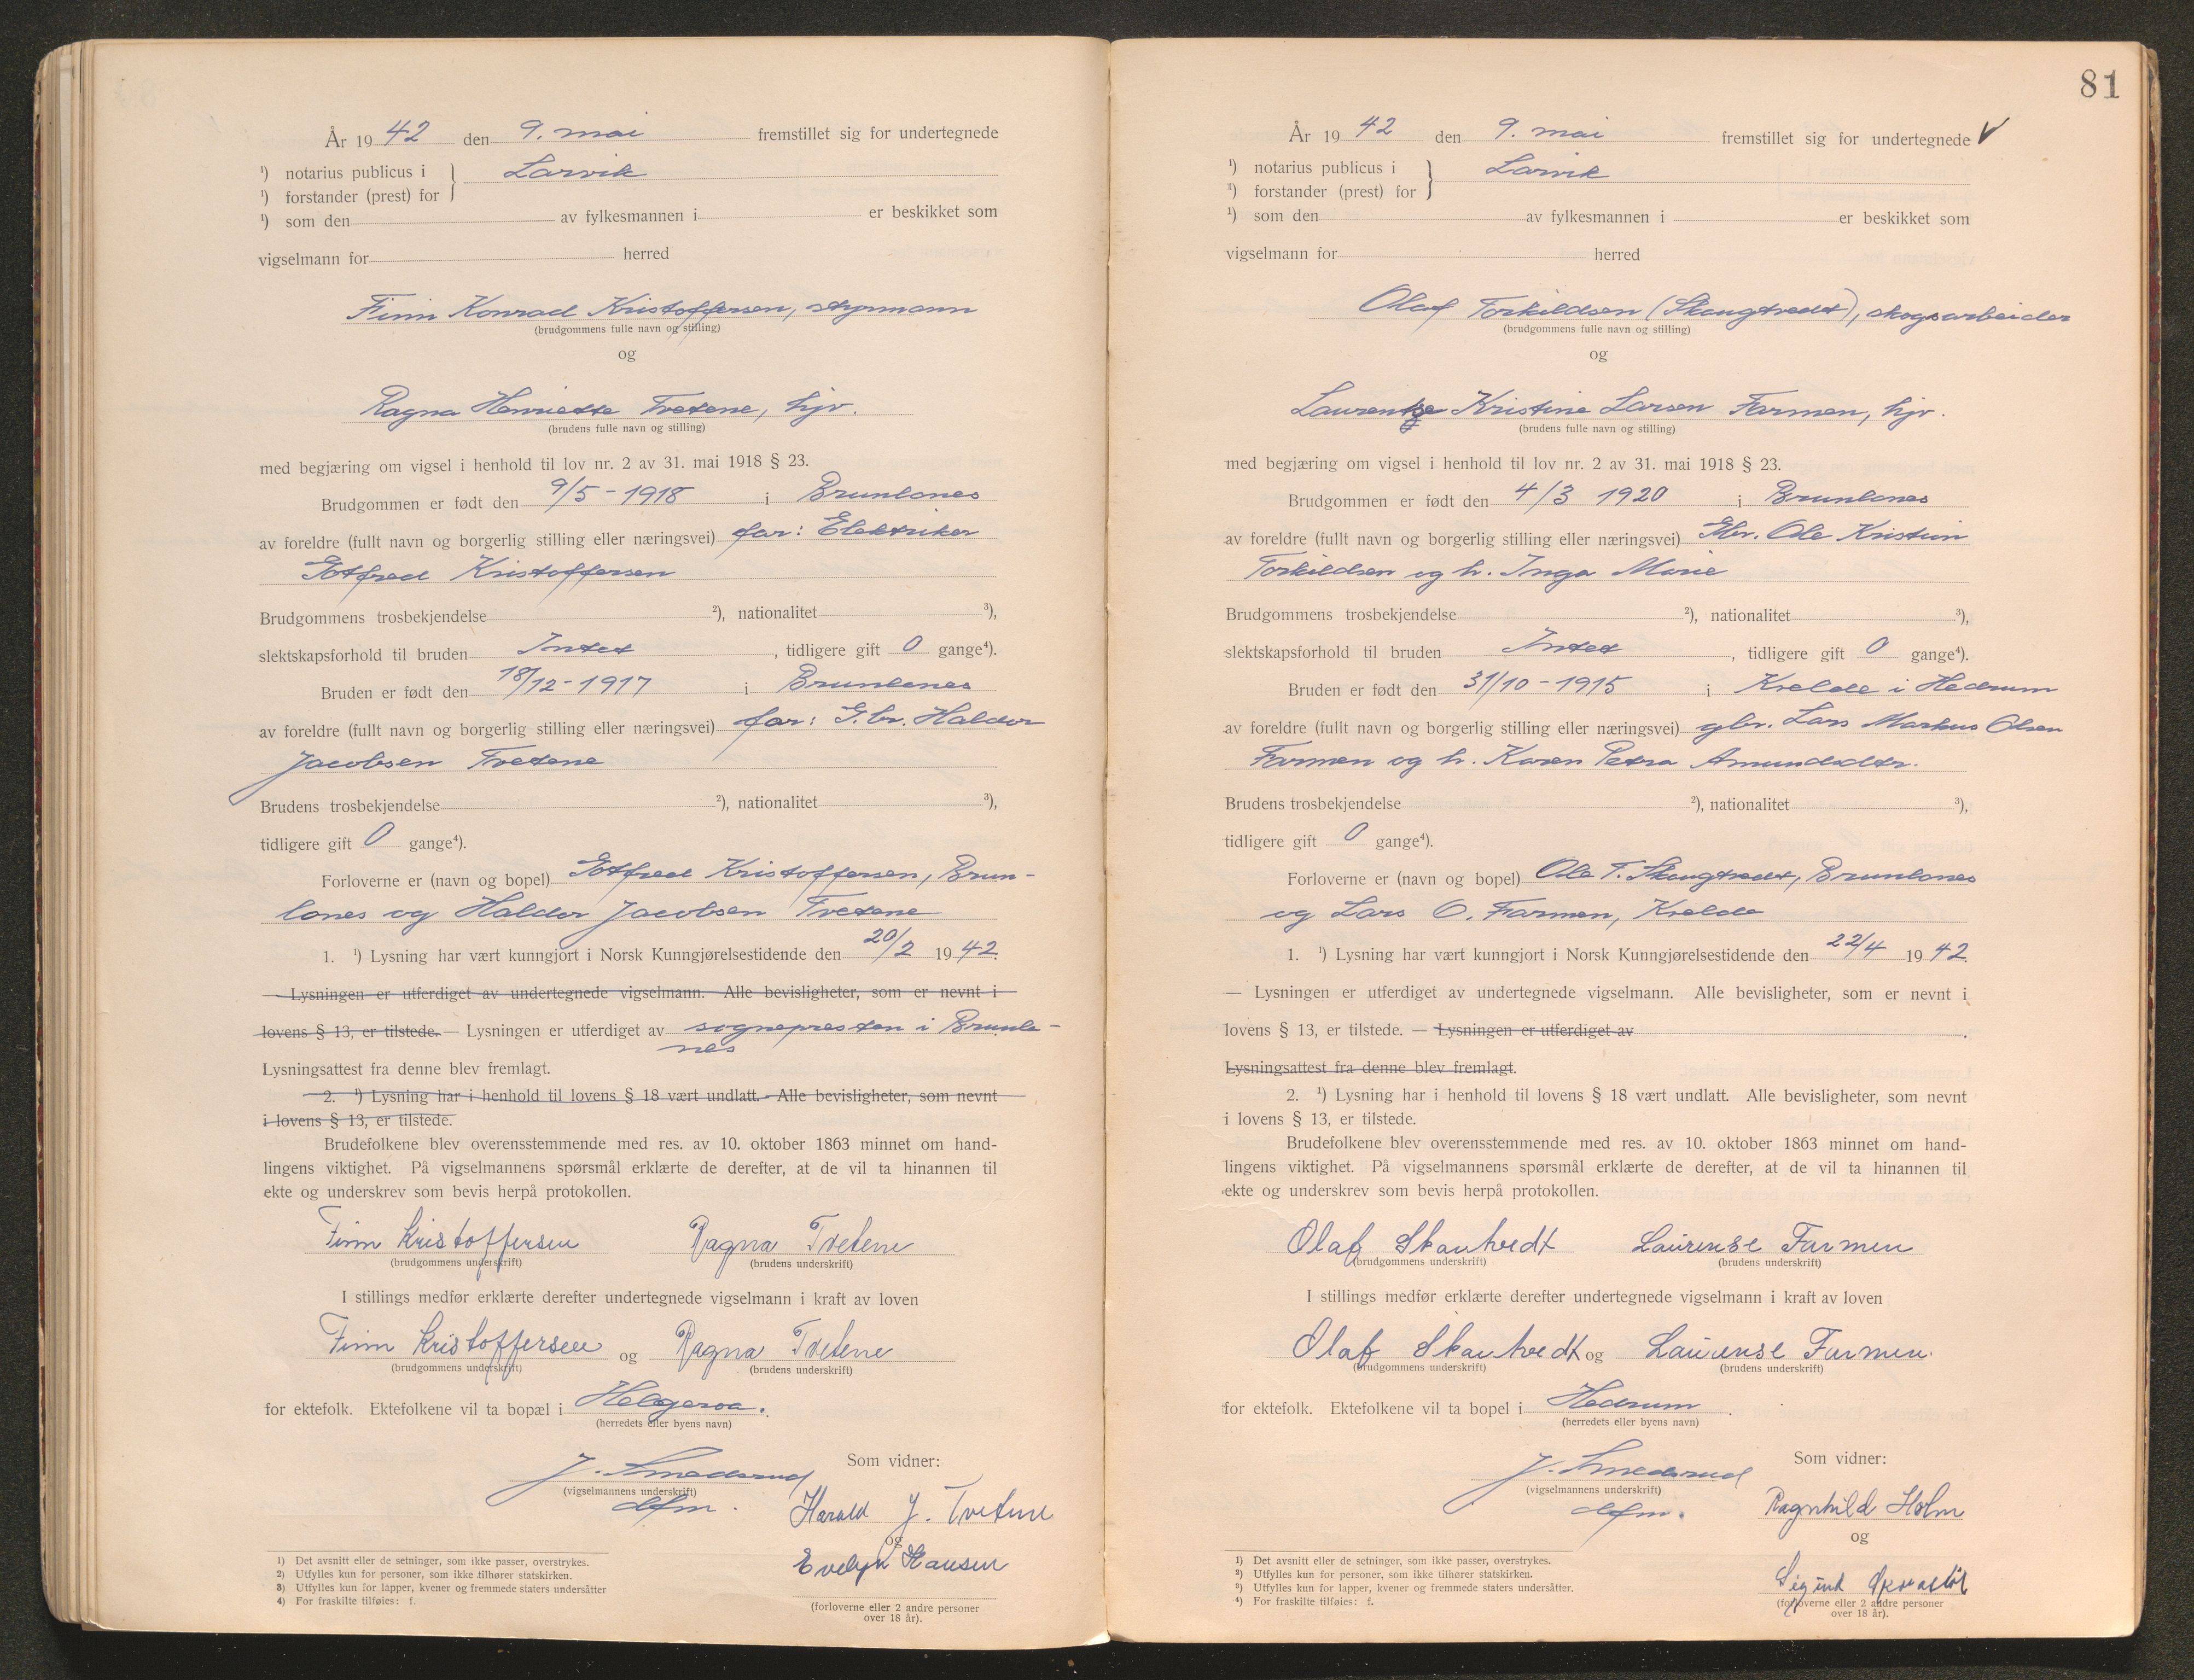 År 1942 den 9. mai fremstillet sig for undertegnede
¹) notarius publicus i } Larvik
¹) forstander (prest) for
¹) som den av fylkesmannen i er beskikket som
vigselmann for herred
Finn Konrad Kristoffersen, styrmann
(brudgommens fulle navn og stilling)
og
Ragna Henriette Tvetene, hjv.
(brudens fulle navn og stilling)
med begjæring om vigsel i henhold til lov nr. 2 av 31. mai 1918 § 23.
Brudgommen er født den 9/5 - 1918 i Brunlanes
av foreldre (fullt navn og borgerlig stilling eller næringsvei) far: Elektriker
Gotfred Kristoffersen
Brudgommens trosbekjendelse ²), nationalitet ³),
slektskapsforhold til bruden Intet, tidligere gift 0 gange⁴).
Bruden er født den 18/12 - 1917 i Brunlanes
av foreldre (fullt navn og borgerlig stilling eller næringsvei) far: G.br. Haldor
Jacobsen Tvetene
Brudens trosbekjendelse ²), nationalitet ³),
tidligere gift 0 gange⁴).
Forloverne er (navn og bopel) Gotfred Kristoffersen, Brun-
lanes og Haldor Jacobsen Tvetene
1. ¹) Lysning har vært kunngjort i Norsk Kunngjørelsestidende den 20/2 1942.
— Lysningen er utferdiget av undertegnede vigselmann. Alle bevisligheter, som er nevnt i
lovens § 13, er tilstede. — Lysningen er utferdiget av sognepresten i Brunla-
nes
Lysningsattest fra denne blev fremlagt.
2. ¹) Lysning har i henhold til lovens § 18 vært undlatt. Alle bevisligheter, som nevnt
i lovens § 13, er tilstede.
Brudefolkene blev overensstemmende med res. av 10. oktober 1863 minnet om hand-
lingens viktighet. På vigselmannens spørsmål erklærte de derefter, at de vil ta hinannen til
ekte og underskrev som bevis herpå protokollen.
Finn Kristoffersen Ragna Tvetene
(brudgommens underskrift) (brudens underskrift)
I stillings medfør erklærte derefter undertegnede vigselmann i kraft av loven
Finn Kristoffersen og Ragna Tvetene
(brudgommens underskrift) (brudens underskrift)
for ektefolk. Ektefolkene vil ta bopæl i Helgeroa.
(herredets eller byens navn)
Som vidner:
J. Smedsrud
(vigselmannens underskrift)
dfm.
Harald J. Tvetene
og
Evelyn Hansen
(forloverne eller 2 andre personer
over 18 år).
1) Det avsnitt eller de setninger, som ikke passer, overstrykes.
2) Utfylles kun for personer, som ikke tilhører statskirken.
3) Utfylles kun for lapper, kvener og fremmede staters undersåtter
4) For fraskilte tilføies: f.
81
År 1942 den 9. mai fremstillet sig for undertegnede
¹) notarius publicus i } Larvik
³) forstander (prest) for
¹) som den av fylkesmannen i er beskikket som
vigselmann for herred
Olaf Torkildsen (Skaugtvedt), skogsarbeider
(brudgommens fulle navn og stilling)
og
Kristine Larsen Farmen, hjv.
(brudens fulle navn og stilling)
med begjæring om vigsel i henhold til lov nr. 2 av 31. mai 1918 § 23.
Brudgommen er født den 4/3 1920 i Brunlanes
av foreldre (fullt navn og borgerlig stilling eller næringsvei) Gbr. Ole Kristian
Torkildsen og h. Inga Marie
Brudgommens trosbekjendelse ²), nationalitet ³),
slektskapsforhold til bruden Intet, tidligere gift 0 gange⁴).
Bruden er født den 31/10 - 1915 i Kvelde i Hedrum
av foreldre (fullt navn og borgerlig stilling eller næringsvei) gbr. Lars Markus Olsen
Farmen og h. Karen Petra Amundsdtr.
Brudens trosbekjendelse ²), nationalitet ³),
tidligere gift 0 gange⁴).
Forloverne er (navn og bopel) Ole T. Skaugtvedt, Brunlanes
og Lars O. Farmen, Kvelde
1. ¹) Lysning har vært kunngjort i Norsk Kunngjørelsestidende den 22/4 1942.
— Lysningen er utferdiget av undertegnede vigselmann. Alle bevisligheter, som er nevnt i
lovens § 13, er tilstede. — Lysningen er utferdiget av
Lysningsattest fra denne blev fremlagt.
2. ¹) Lysning har i henhold til lovens § 18 vært undlatt. Alle bevisligheter, som nevnt
i lovens § 13, er tilstede.
Brudefolkene blev overensstemmende med res. av 10. oktober 1863 minnet om hand-
lingens viktighet. På vigselmannens spørsmål erklærte de derefter, at de vil ta hinannen til
ekte og underskrev som bevis herpå protokollen.
Olaf Skautvedt Laurense Farmen
(brudgommens underskrift) (brudens underskrift)
I stillings medfør erklærte derefter undertegnede vigselmann i kraft av loven
Olaf Skautvedt og Laurense Farmen.
(brudgommens underskrift) (brudens underskrift)
for ektefolk. Ektefolkene vil ta bopel i Hedrum.
(herredets eller byens navn)
Som vidner:
J. Smedsrud
(vigselmannens underskrift)
dfm.
Ragnhild Holm
og
(forloverne eller 2 andre personer
over 18 år).
1) Det avsnitt eller de setninger, som ikke passer, overstrykes.
2) Utfylles kun for personer, som ikke tilhører statskirken.
3) Utfylles kun for lapper, kvener og fremmede staters undersåtter.
4) For fraskilte tilføies: f.